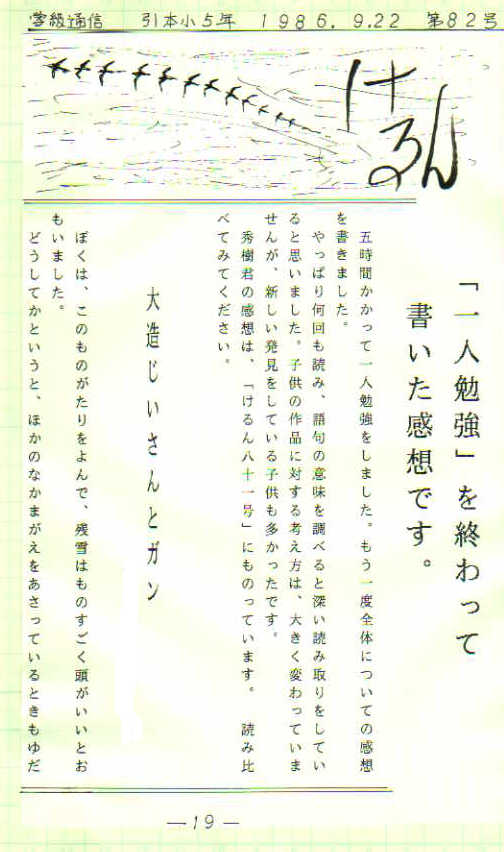 学級通信 引本小5年 1986.9.22 第82号
けるん
「一人勉強」を終わって
書いた感想です。
五時間かかって一人勉強をしました。もう一度全体についての感想
を書きました。
やっぱり何回も読み、語句の意味を調べると深い読み取りをしてい
ると思いました。子供の作品に対する考え方は、大きく変わっていま
せんが、新しい発見をしている子供も多かったです。
秀樹君の感想は、「けるん八十一号」にものっています。 読み比
べてみてください。
大造じいさんとガン
ぼくは、このものがたりをよんで、残雪はものすごく頭がいいとお
もいました。
どうしてかというと、ほかのなかまがえをあさっているときもゆだ
—19—